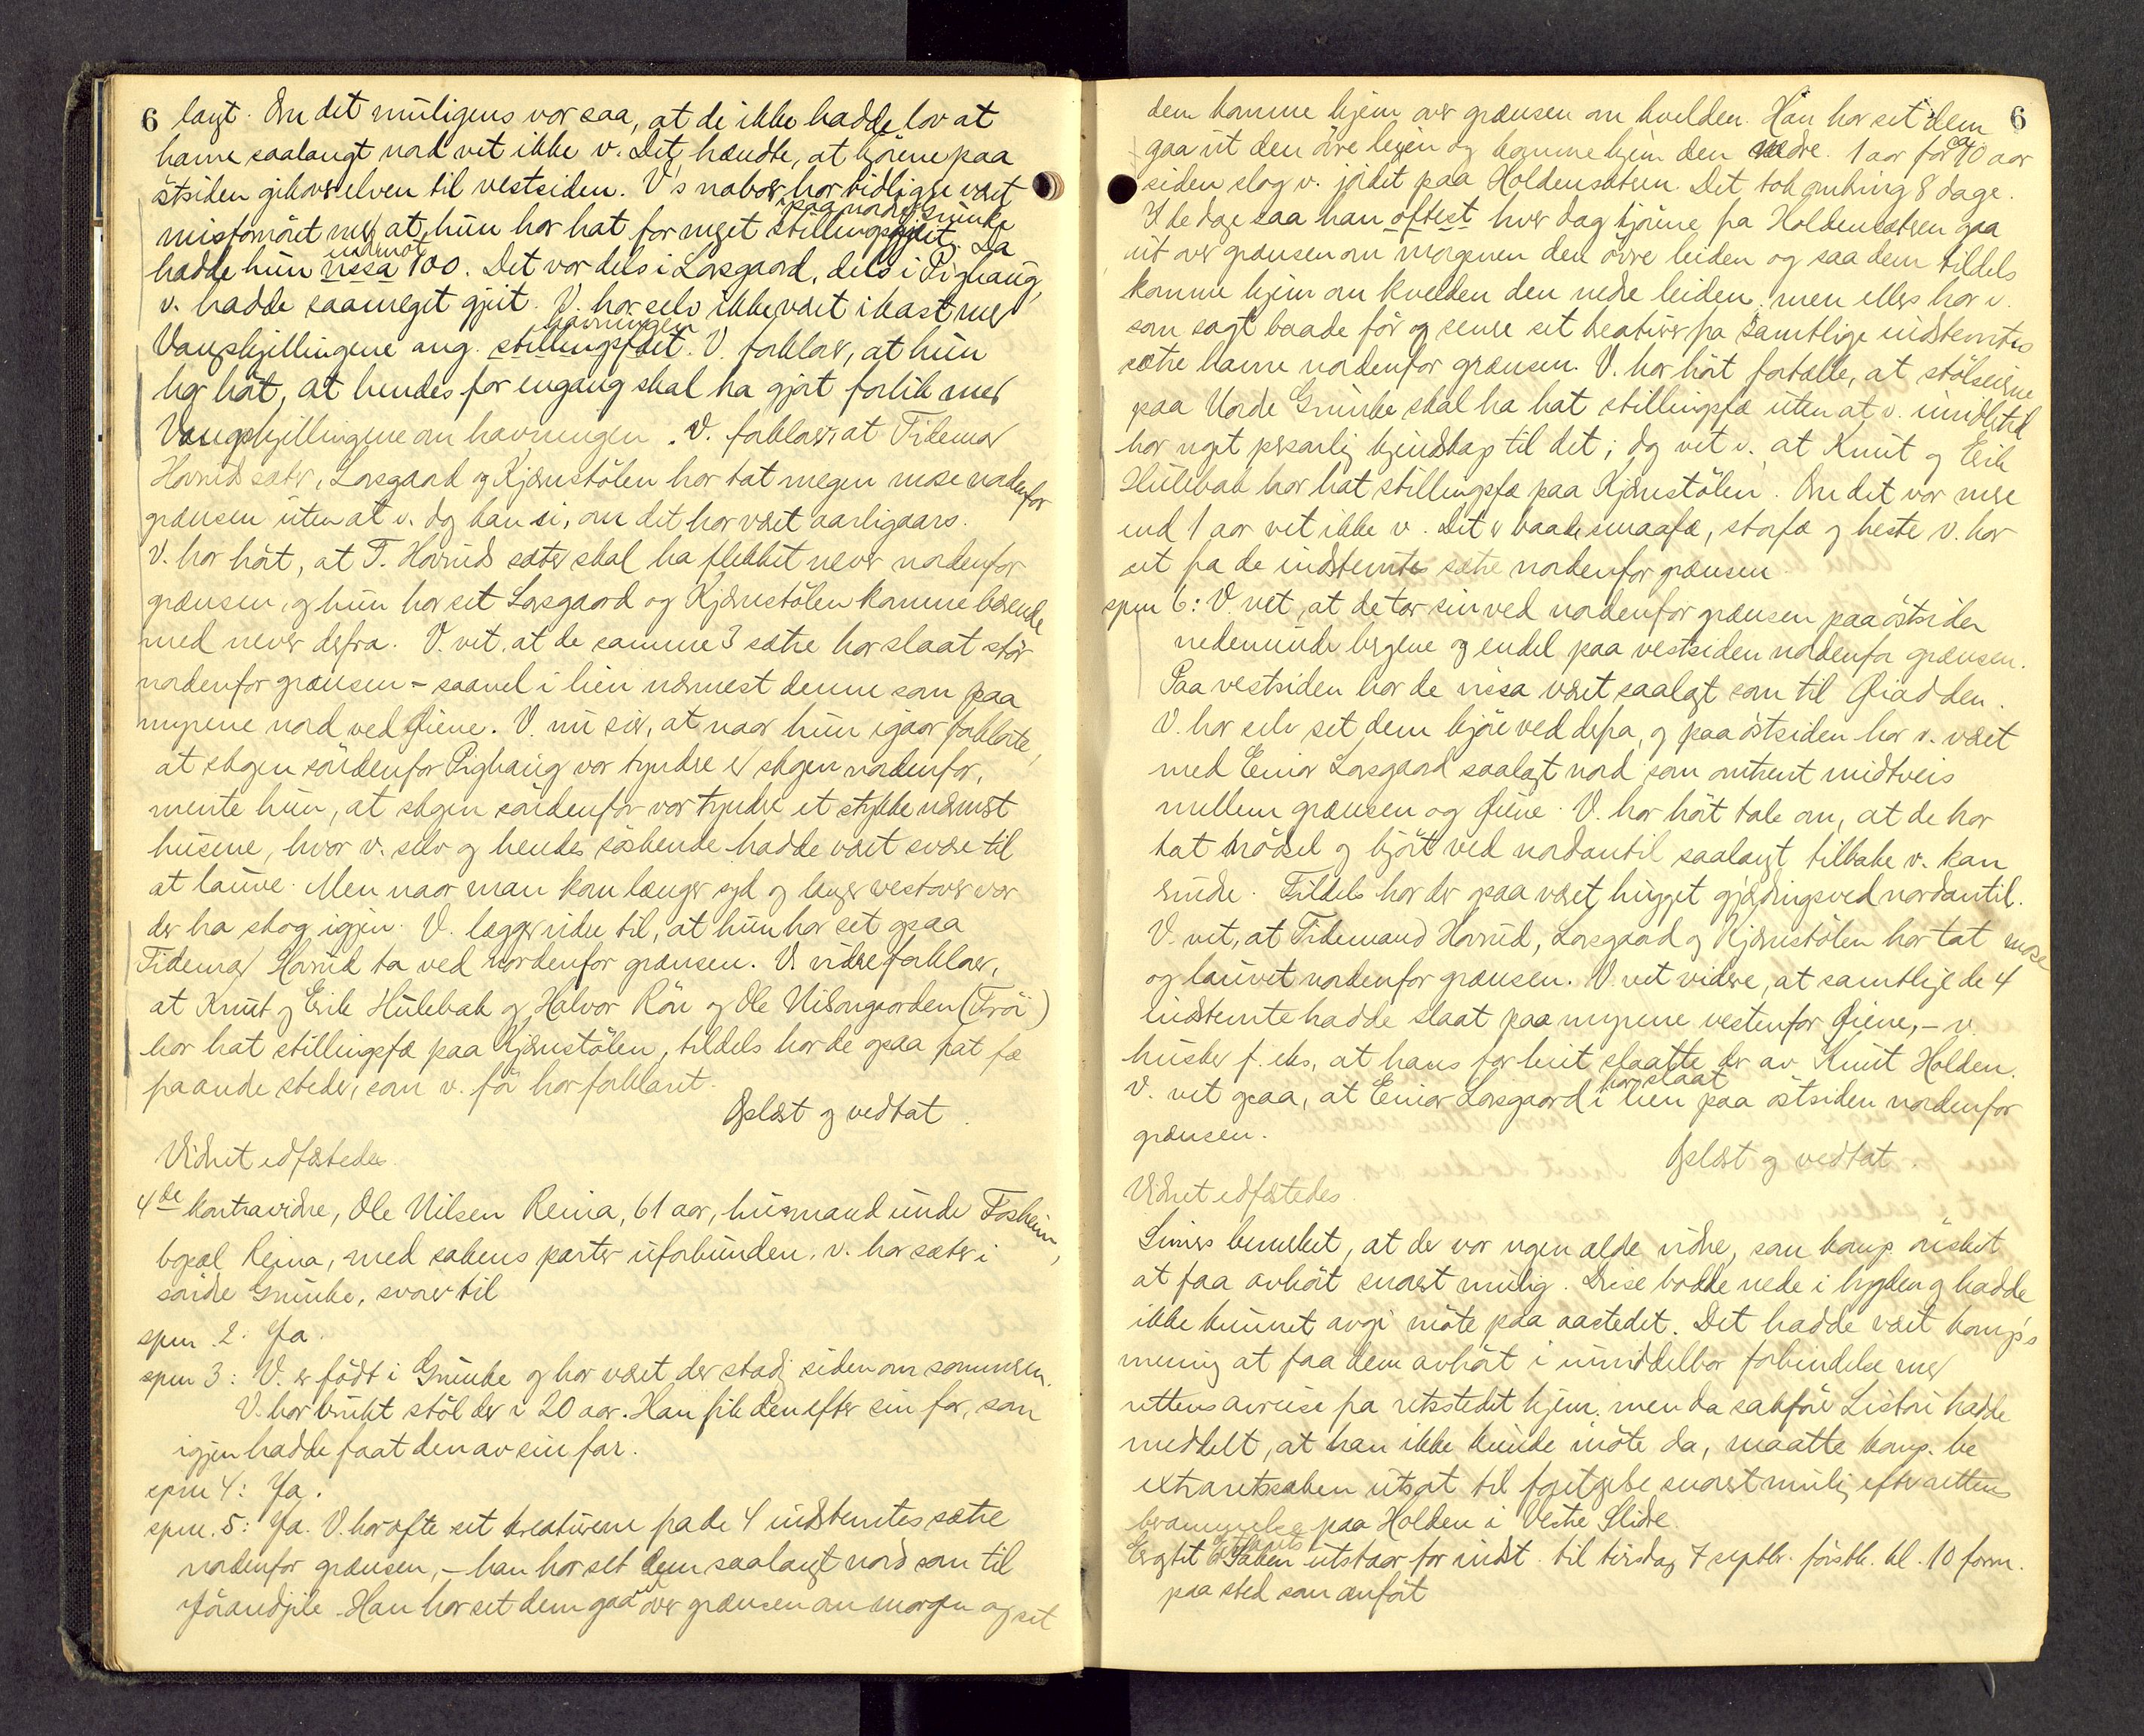 6 langt. Om det muligens var saa, at de ikke hadde lov at
havne saalangt nord vet ikke v. Det hændte, at kjörene paa
östsiden gik over elven til vestsiden. V's naboer har tidligere vært
paa nordre Grunke
misfornöiet med at hun har hat for meget stillingsgjeit. Da
endmot
hadde hun vissa 100. Det var dels i Lovsgaard, dels i Pighaug,
v. hadde saameget gjeit. V. har selv ikke vært i kast med
havningen
Vangskjellingene ang. stillingsfæet. V. forklarer, at hun
har hört, at hendes far engang skal ha gjort forlik med
Vangskjellingene om havningen. V. forklarer, at Tidemand
Hovrudsæter, Lovsgaard og Kjörnstölen har tat megen mose nordenfor
grænsen uten at v. dog kan si, om det har vært aarligaars.
V. har hört, at T. Hovruds sæter skal ha flekket never nordenfor
grænsen, og hun har set Lovsgaard og Kjörnstölen komme bærende
med never derfra. V. vet, at de samme 3 sætre har slaat stör
nordenfor grænsen - saavel i lien nærmest denne som paa
myrene nord ved Fiene. V. nu sier, at naar hun igaar forklarte,
at skogen söndenfor Pighaug var tyndre end skogen nordenfor,
mente hun, at skogen söndenfor var tyndre et stykke nærmest
husene, hvor v. selv og hendes söskende hadde vært svære til
at lauve. Men naar man kom længer syd og længer vestover var
der bra skog igjen. V. lægger videre til, at hun har set ogsaa
Tidemand Hovrud ta ved nordenfor grænsen. V. videre forklarer,
at Knut og Erik Hülebak og Halvor Rön og Ole Nilsngaarden (Tröi)
har hat stillingsfæ paa Kjörnstölen, tildels har de ogsaa hat fæ
paa andre steder, som v. för har forklaret.
Oplæst og vedtat.
Vidnet edfæstedes.
4de kontravidne, Ole Nilsen Reina, 61 aar, husmand under Fosheim,
bopæl Reina, med sakens parter uforbunden. v. har sæter i
söndre Grunke, svarer til
spm. 2: Ja.
spm 3: V. er födt i Grunke og har været der stadig siden om sommeren.
V. har brukt stöl der i 20 aar. Han fik den efter sin far, som
igjen hadde faat den av sin far.
spm 4: Ja.
spm. 5: Ja. V. har ofte set kreaturene fra de 4 indstevntes sætre
nordenfor grænsen, - han har set dem saalangt nord som til
Jörandjile. Han har set dem gaa ut over grænsen om morgen og set
6
dem komme hjem over grænsen om kvelden. Han har set dem
gaa ut den övre leien og komme hjem den nedre. 1 aar for ca 40 aar
siden slog v. jordet paa Holdensætren. Det tok omkring 8 dage.
I de dage saa han oftest hver dag kjörne fra Holdensætren gaa
ut over grænsen om morgenen den övre leiden og saa dem tildels
komme hjem om kvelden den nedre leiden, men ellers har v.
som sagt baade för og senere set kreaturer fra samtlige indstevntes
sætre havne nordenfor grænsen. V. har hört fortælle, at stölseierne
paa Nordre Grunke skal ha hat stillingsfæ uten at v. imidlertid
har noget personlig kjendskap til det; dog vet v. at Knut og Erik
Hülebak har hat stillingsfæ paa Kjörnstölen. Om det var mere
end 1 aar vet ikke v. Det er baade smaafæ, storfæ og heste v. har
set fra de indstevntes sætre nordenfor grænsen.
spm 6: V. vet, at de tar sin ved nordenfor grænsen paa östsiden
nedenunder bergene og endel paa vestsiden nordenfor grænsen.
Paa vestsiden har de vissa været saalangt som til Qiadden.
V. har selv set dem kjöre ved derfra, og paa östsiden har v. været
med Einar Lovsgaard saalangt nord som omtrent midtveis
mellem grænsen og Fiene. V. har hört tale om, at de har
tat trödsel og kjört ved nordantil saalangt tilbake v. kan
minde. Tildels har der ogsaa været hugget gjærdingsved nordantil.
V. vet, at Tidemand Hovrud, Lovsgaard og Kjörnstölen har tat mose
og lauvet nordenfor grænsen. V. vet videre, at samtlige de 4
indstevnte hadde slaat paa myrene vestenfor Fiene, - v.
husker f. eks, at hans far leiet slaatte der av Knut Holden.
har slaat
V. vet ogsaa, at Einar Lovsgaard i lien paa östsiden nordenfor
grænsen.
Oplæst og vedtat.
Vidnet edfæstedes.
Liners bemerket, at der var nogen ældre vidner, som komp. önsket
at faa avhört snarest mulig. Disse bodde nede i bygden og hadde
ikke kunnet avgi möte paa aastedet. Det hadde vært komp's
mening at faa dem avhört i umiddelbar forbindelse med
rettens avreise fra retsstedet hjem, men da sakförer Listöi hadde
meddelt, at han ikke kunde möte da, maatte komp. be
extraretssaken utsat til foretagelse snarest mulig efter rettens
berammelse paa Holden i Vestre Slidre.
Eragtet Saken utstaar for indst. til tirsdag 7 septbr. förstk. kl. 10 form.
paa sted som anfört